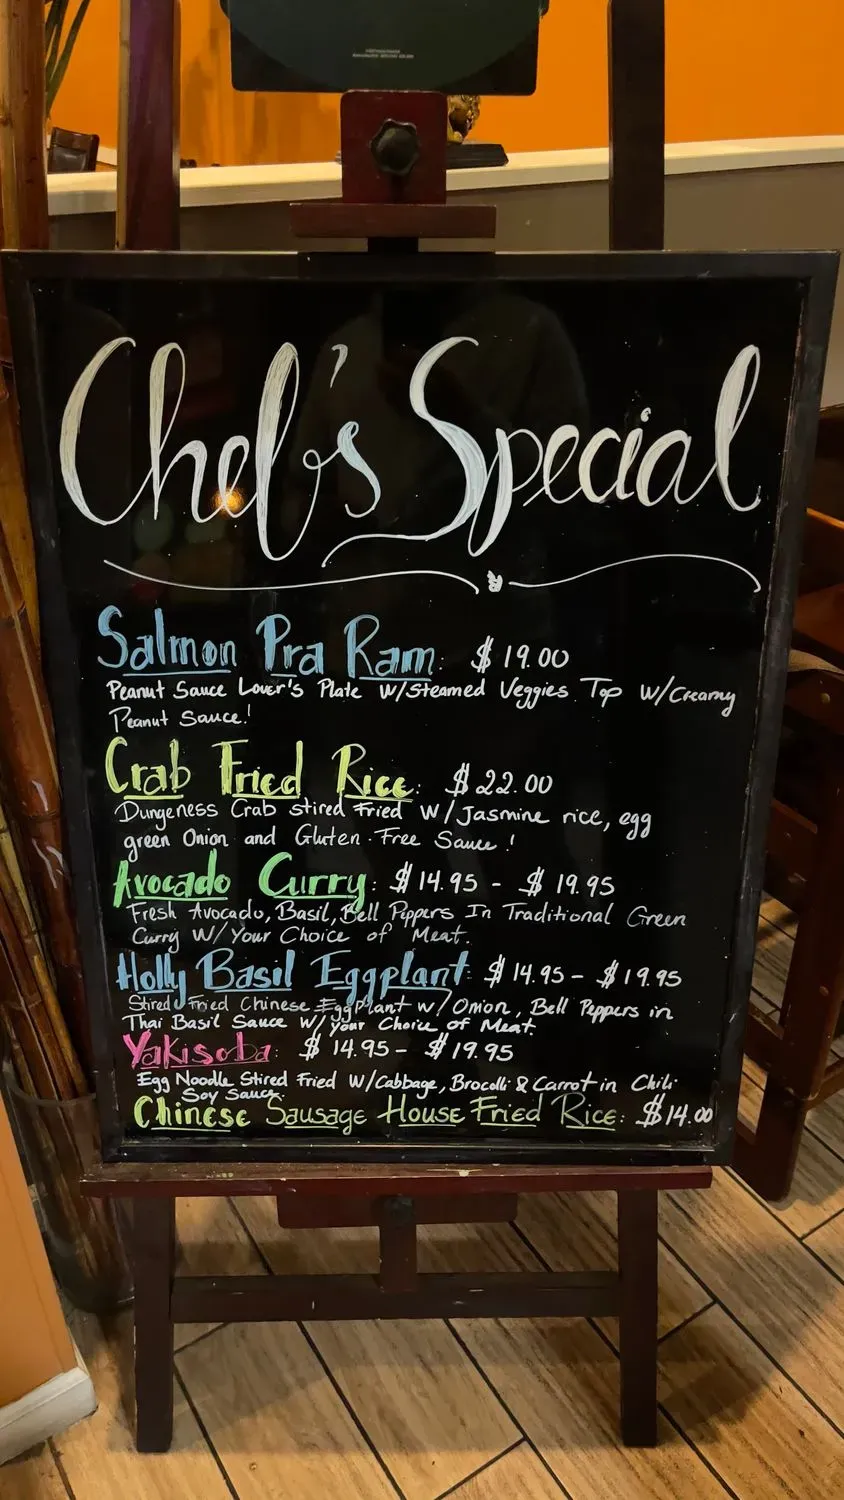 Chef's Special
Salmon Pra Ram: $19.00
Peanut Sauce Lover's Plate w/Steamed Veggies. Top w/Creamy
Peanut Sauce!
Crab Fried Rice: $22.00
Dungeness Crab stired Fried w/Jasmine rice, egg
green Onion and Gluten-Free Sauce!
Avocado Curry: $14.95 - $19.95
Fresh Avocado, Basil, Bell Peppers In Traditional Green
Curry W/Your Choice of Meat.
Holly Basil Eggplant: $14.95 - $19.95
Stired Fried Chinese Eggplant w/Onion, Bell Peppers in
Thai Basil Sauce w/your Choice of Meat.
Yakisoba: $14.95 - $19.95
Egg Noodle Stired Fried W/Cabbage, Brocolli & Carrot in Chili
Soy Sauce.
Chinese Sausage House Fried Rice: $14.00